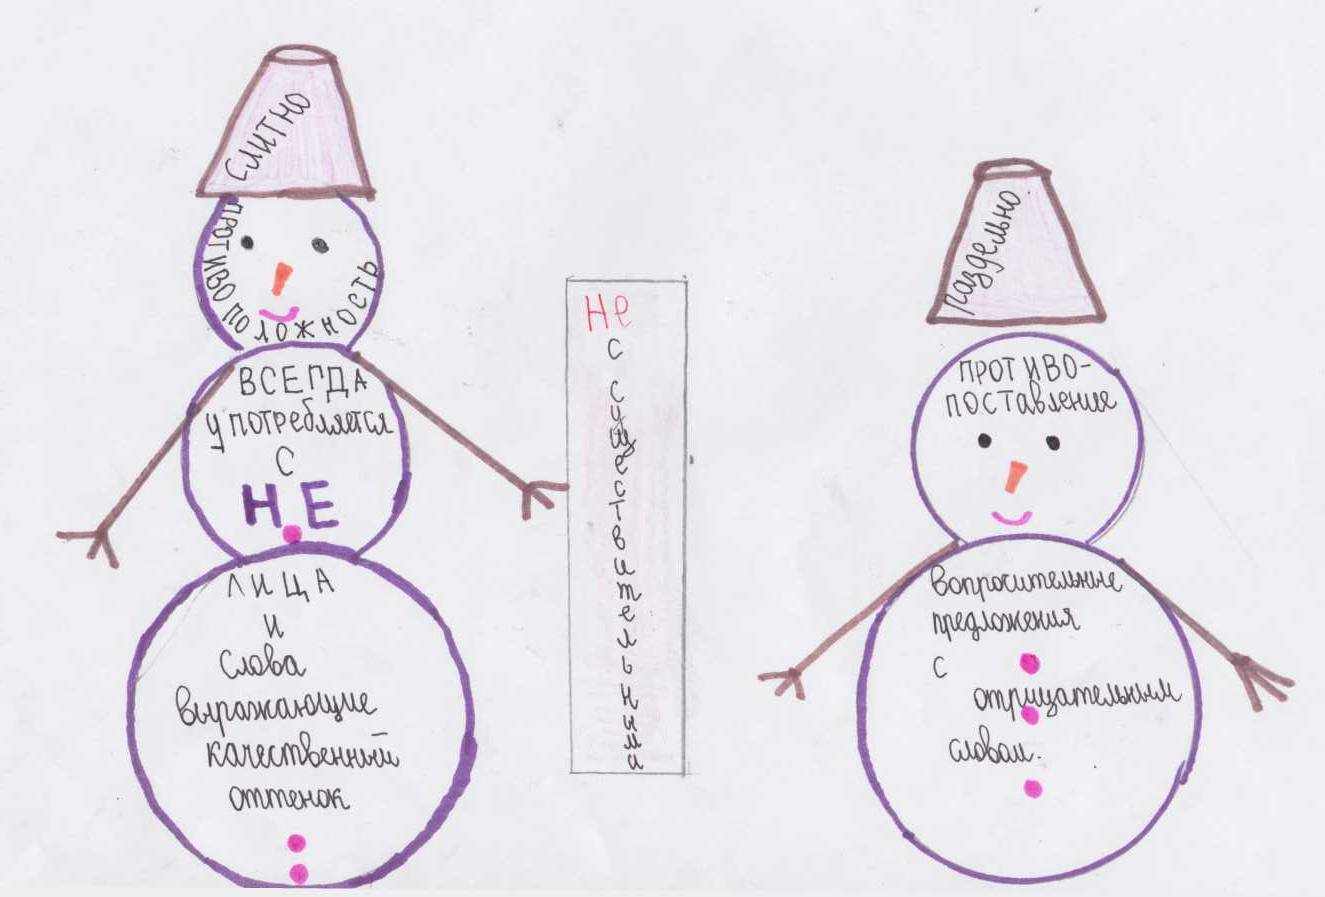 СЛИТНО
ПРОТИВОПОЛОЖНОСТЬ
ВСЕГДА
употребляется
С
НЕ
ЛИЦА
И
Слова
выражающие
качественный
оттенок
Не
с
существительными
Раздельно
ПРОТИВО-
ПОСТАВЛЕНИЕ
вопросительные
предложения
с
отрицательным
словом.